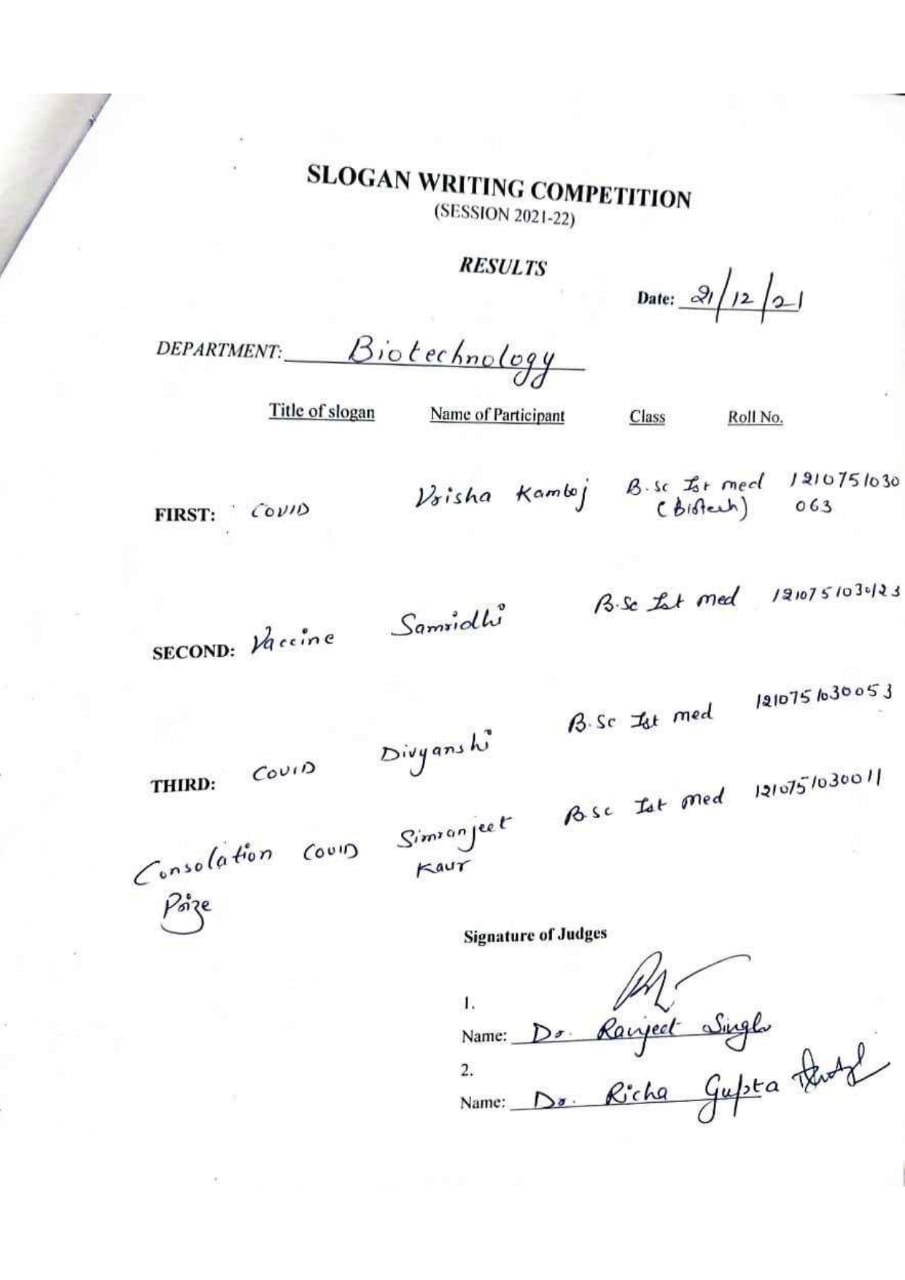 SLOGAN WRITING COMPETITION
(SESSION 2021-22)
RESULTS
Date: 21/12/21
DEPARTMENT: Biotechnology
Title of slogan Name of Participant Class Roll No.
FIRST: COVID Vrisha Kamboj B.Sc Ist med 1210751030
(Biotech) 063
SECOND: Vaccine Samridhi B.Sc Ist med 1210751030123
THIRD: COVID Divyanshi B.Sc Ist med 1210751030053
Consolation COVID Simranjeet B.Sc Ist med 1210751030011
Prize Kaur
Signature of Judges
1.
Name: Dr. Ranjeet Singh
2.
Name: Dr. Richa Gupta